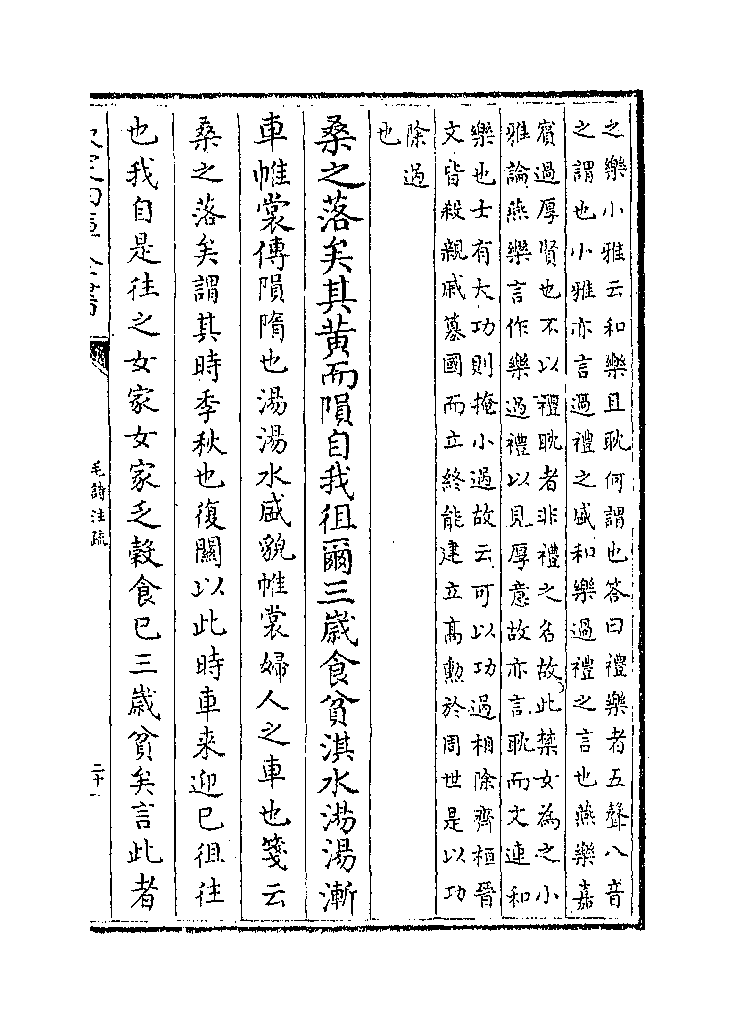 之樂小雅云和樂且耽何謂也答曰禮樂者五聲八音
之謂也小雅亦言過禮之盛和樂過禮之言也燕樂嘉
賓過厚賢也不以禮耽者非禮之名故此禁女為之小
雅論燕樂言作樂過禮以見厚意故亦言耽而文連和
樂也士有大功則掩小過故云可以功過相除齊桓晉
文皆殺親戚簒國而立終能建立高勲於周世是以功
除過
也
桑之落矣其黄而隕自我徂爾三嵗食貧淇水湯湯漸
車帷裳傳隕隋也湯湯水盛貌帷裳婦人之車也箋云
桑之落矣謂其時季秋也復關以此時車来迎已徂往
也我自是往之女家女家乏穀食已三嵗貧矣言此者
欽定四庫全書
毛詩注疏
二十一